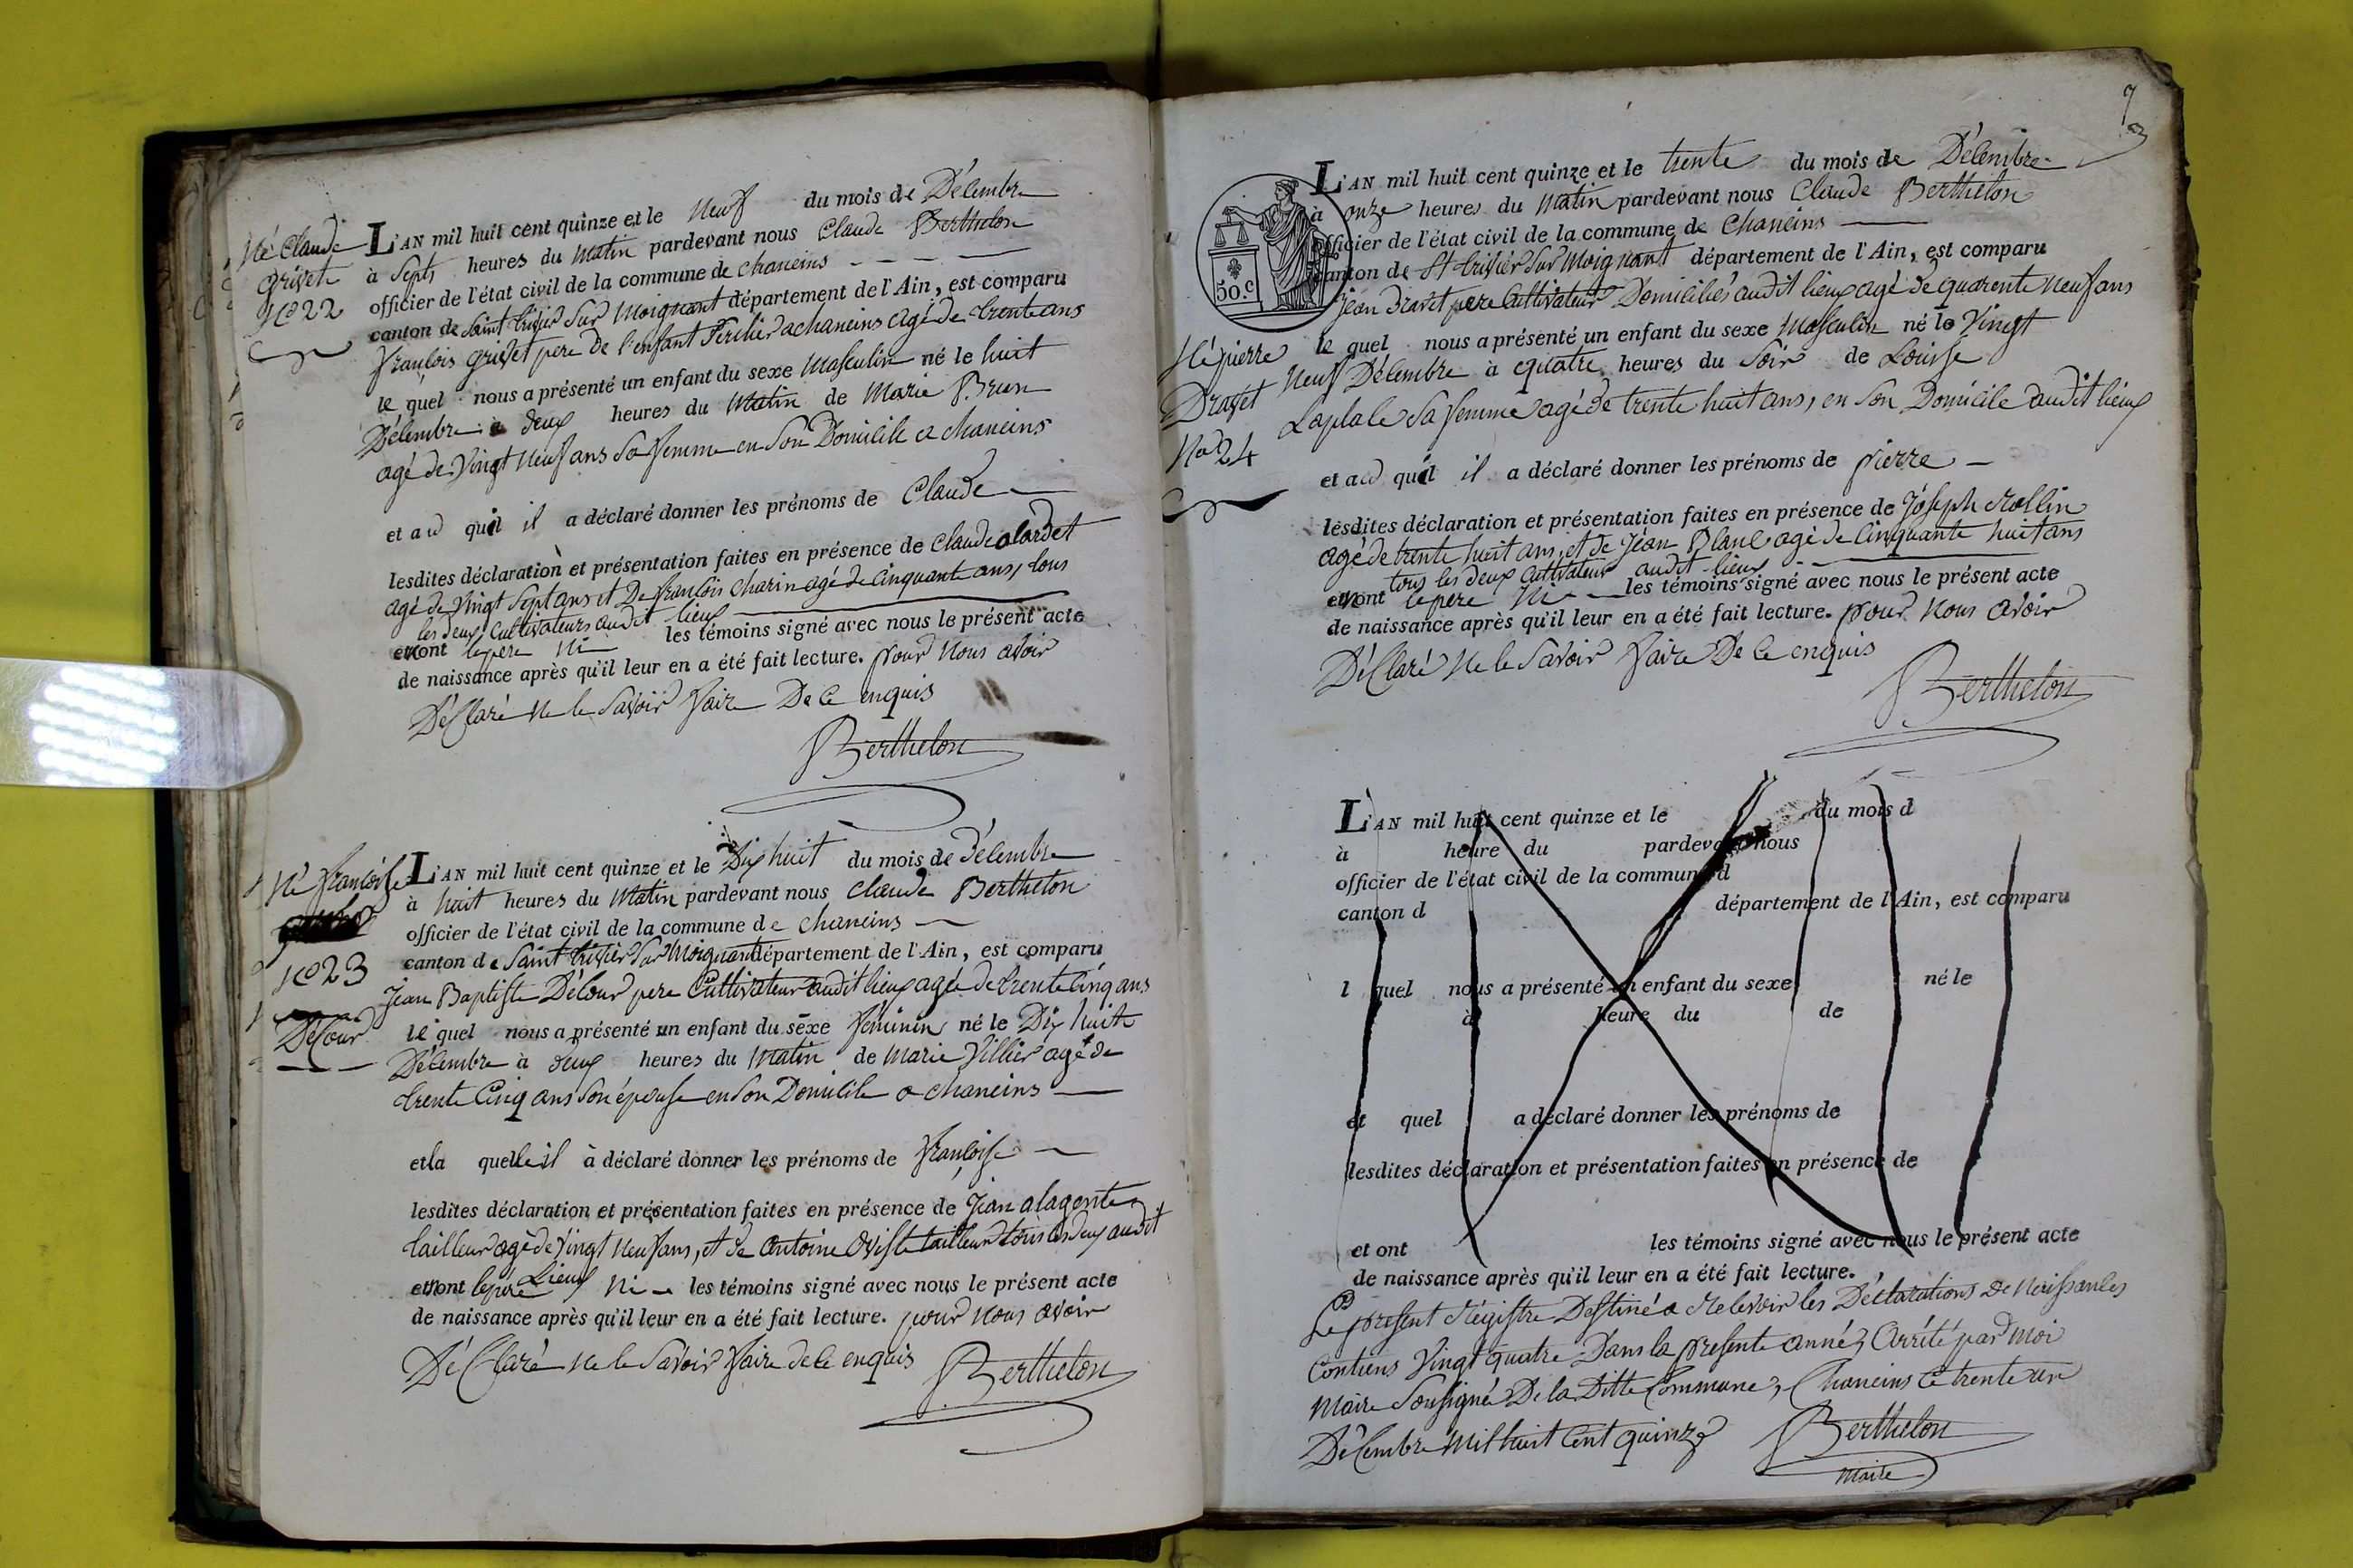 Né Claude
Grivet
No 22
L'AN mil huit cent quinze et le Neuf du mois de Décembre
à Septs heures du Matin pardevant nous Claude Berthelon
officier de l'état civil de la commune de chaneins
canton de Saint trivier Sur Moignant département de l'Ain, est comparu
françois grivet pere de l'enfant a chaneins agé de trente ans
le quel nous a présenté un enfant du sexe Masculin né le huit
Décembre à deux heures du Matin de Marie Brun
agé de Vingt Neuf ans Sa femme en Son Domicile a chaneins
et au quil il a déclaré donner les prénoms de Claude
lesdites déclaration et présentation faites en présence de Claude alardet
agé de Vingt Sept ans et De françois Charin agé de Cinquante ans, tous
les deux Cultivateurs audit lieux
et ont le pere Ni les témoins signé avec nous le présent acte
de naissance après qu'il leur en a été fait lecture. pour Nous avoir
Déclaré Ne le Savoir faire De ce enquis
Berthelon
Né francoise
No 23
Décour
L'AN mil huit cent quinze et le Dix huit du mois de Décembre
à huit heures du Matin pardevant nous Claude Berthelon
officier de l'état civil de la commune de chaneins
canton de Saint trivier Sur Moignant département de l'Ain, est comparu
Jean Baptiste Décour pere Cultivateur audit lieux agé de trente Cinq ans
le quel nous a présenté un enfant du sexe feminin né le Dix huit
Décembre à deux heures du Matin de Marie Villier agé de
trente Cinq ans Son épouse en Son Domicile a chaneins
et la quelle il à déclaré donner les prénoms de françoise
lesdites déclaration et présentation faites en présence de Jean alagente
tailleur agé de Vingt Neuf ans, et de antoine tailleur tous les deux audit
Lieux
et ont le pére Ni les témoins signé avec nous le présent acte
de naissance après qu'il leur en a été fait lecture. pour Nous avoir
Déclaré Ne le Savoir faire de ce enquis
Berthelon
50.c
Né pierre
Dravet
No 24
L'AN mil huit cent quinze et le trente du mois de Décembre
à onze heures du Matin pardevant nous Claude Berthelon
officier de l'état civil de la commune de Chaneins
canton de St trivier Sur Moignant département de l'Ain, est comparu
Jean Dravet pere Cultivateur Domiciliés audit lieux agé de quarente Neuf ans
le quel nous a présenté un enfant du sexe Masculin né le Vingt
Neuf Décembre à quatre heures du Soir de Louise
Laplace Sa femme agé de trente huit ans, en Son Domicile audit lieux
et au quil il a déclaré donner les prénoms de pierre
lesdites déclaration et présentation faites en présence de Joseph Rollin
agé de trente huit ans et de Jéan Blanc agé de Cinquante huit ans
tous les deux Cultivateur audit lieux
et ont le pere Ni les témoins signé avec nous le présent acte
de naissance après qu'il leur en a été fait lecture. pour Nous avoir
Déclaré Ne le Savoir faire De ce enquis
Berthelon
L'AN mil huit cent quinze et le du mois d
à heure du pardevant nous
officier de l'état civil de la commune d
canton d département de l'Ain, est comparu
l quel nous a présenté un enfant du sexe né le
à heure du de
et quel a déclaré donner les prénoms de
lesdites déclaration et présentation faites en présence de
et ont les témoins signé avec nous le présent acte
de naissance après qu'il leur en a été fait lecture.
Le present Régistre Destiné a Recevoir les Déclarations De Naissances
Contiens Vingt quatre Dans la presente année, Arrété par Moi
Maire Sousigné De la Ditte Commune, Chaneins ce trente un
Décembre Mil huit Cent quinze
Berthelon
Maire